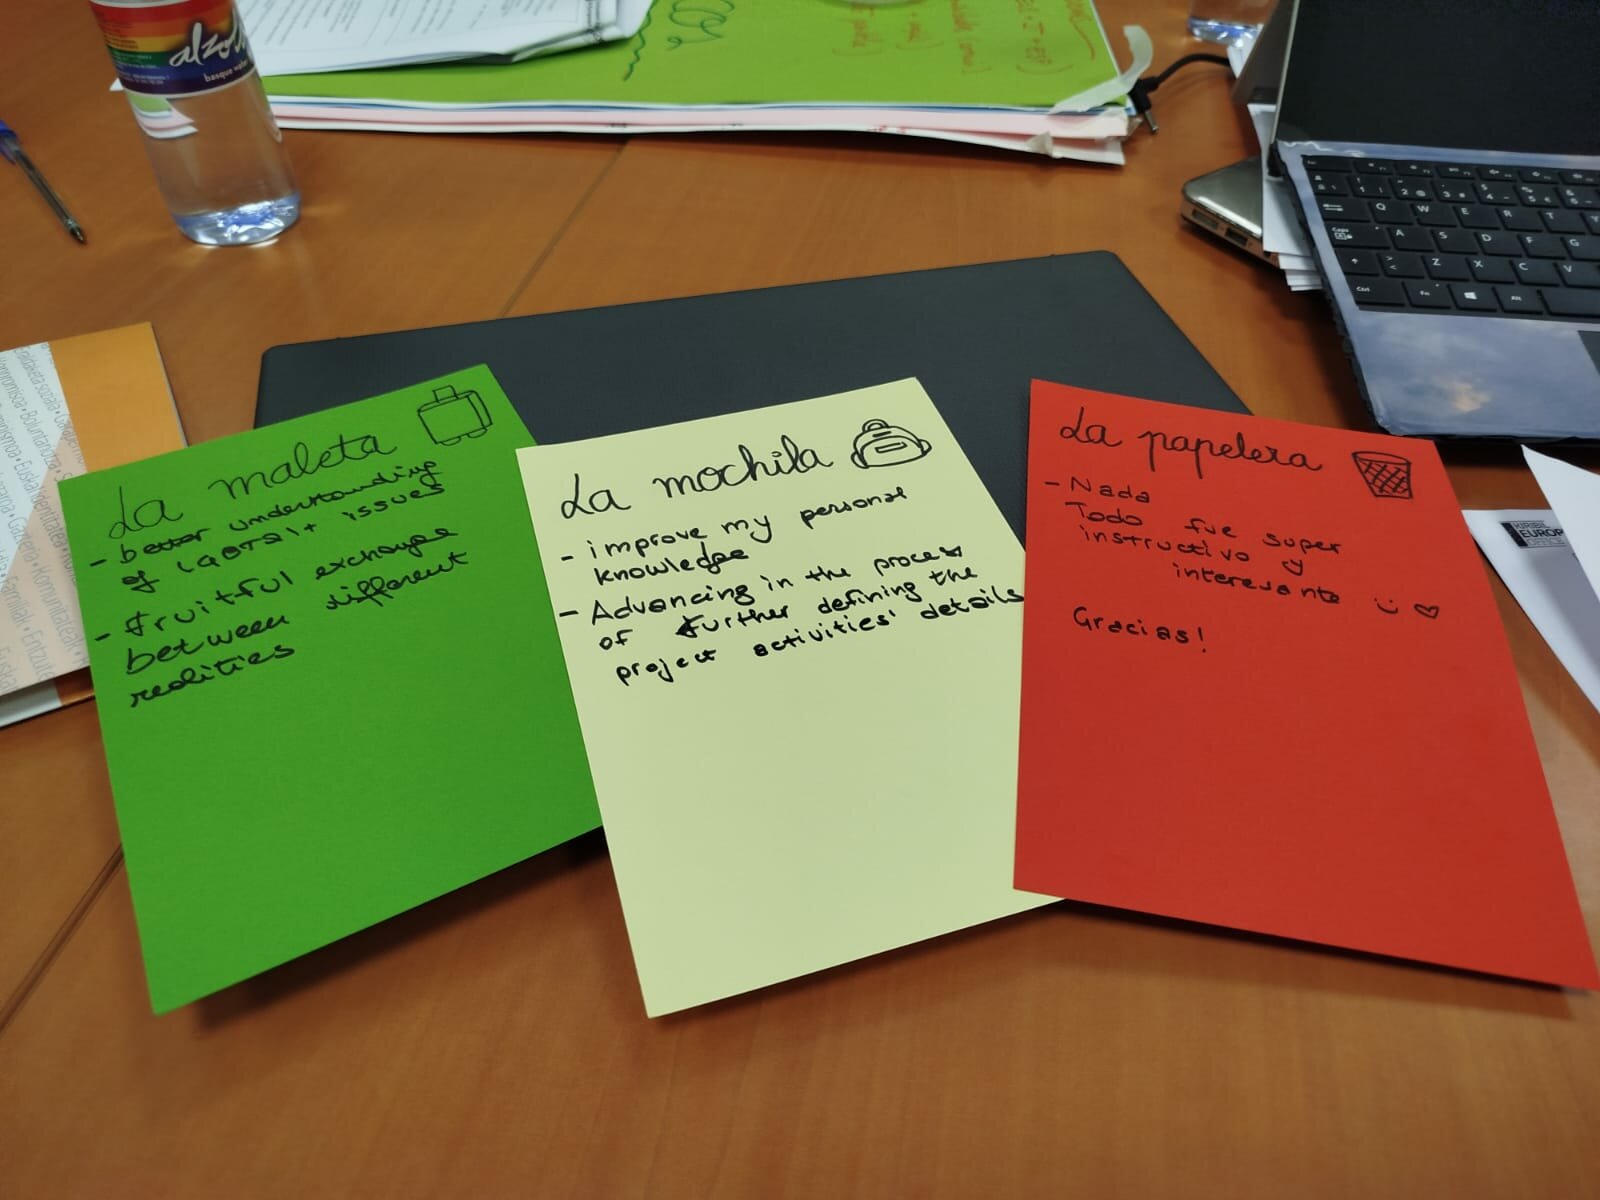 alzola
basque water
La maleta
- better understanding
of LGBTQI+ issues
- fruitful exchange
between different
realities
La mochila
- improve my personal
knowledge
- Advancing in the process
of further defining the
project activities' details
La papelera
- Nada
Todo fue super
instructivo y
interesante
Gracias!
EUROP
OFFICE
Q W E R T
A S D F G
Z X C V
Ctrl Fn Alt